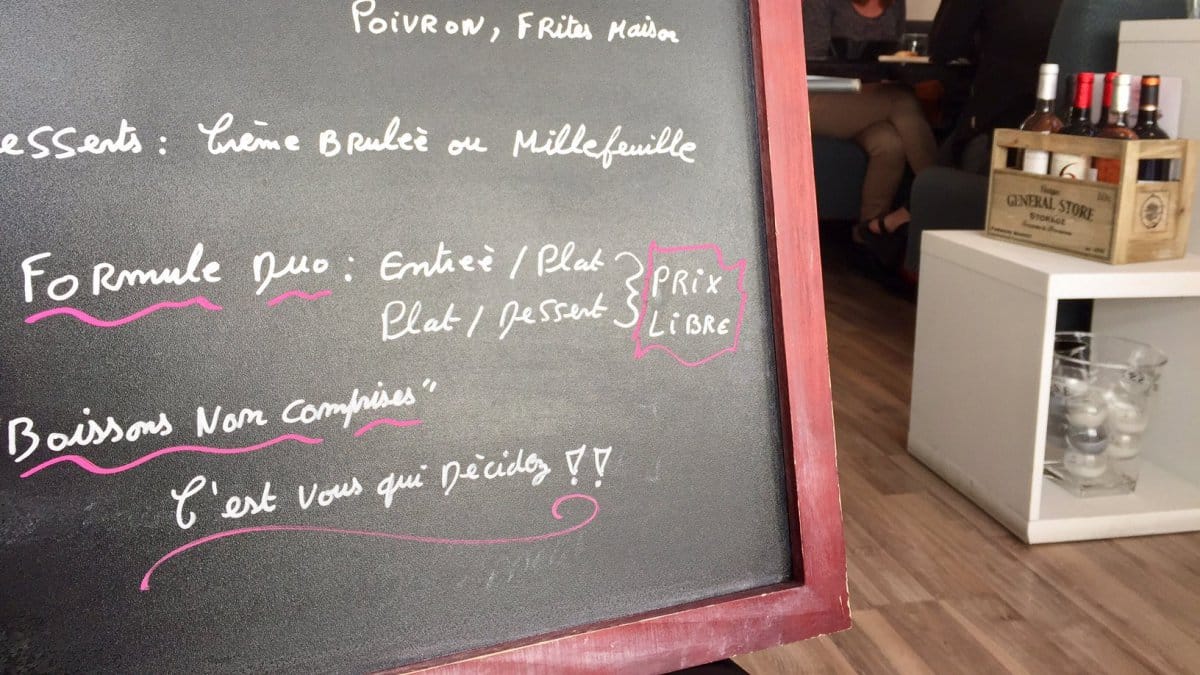 POIVRON, FRites Maison
esserts : Crème Bruleè ou Millefeuille
Formule Duo : Entreè / Plat
Plat / Dessert
PRiX
LiBRE
"Boissons Non Comprises"
C'est Vous qui Dècidez !!
GENERAL STORE
STORAGE
6